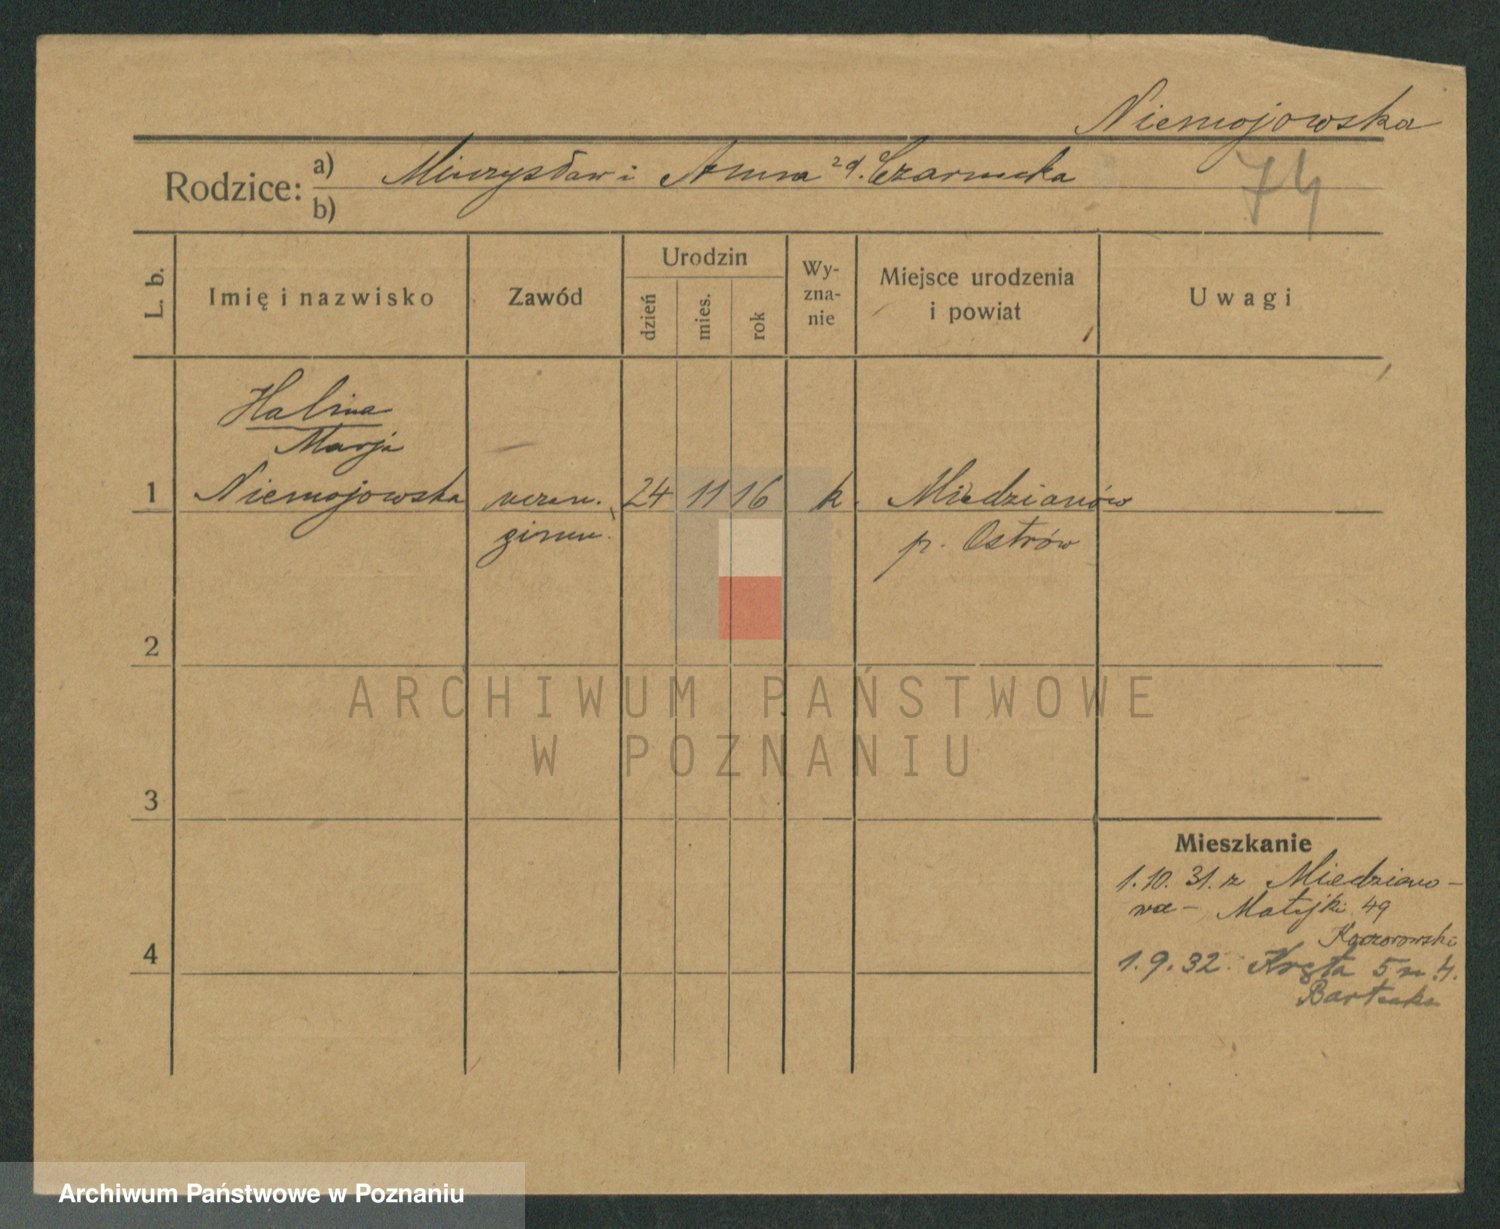 Niemojowska
74
Rodzice: a) Mieczysław i Anna zd. Czarnecka
b)
L. b.
Imię i nazwisko
Zawód
Urodzin
dzień
mies.
rok
Wy-
zna-
nie
Miejsce urodzenia
i powiat
Uwagi
Halina
Marja
1 Niemojowska uczen. 24 11 16 k. Miedzianów
gimn. p. Ostrów
2
ARCHIWUM PAŃSTWOWE
W POZNANIU
3
Mieszkanie
1.10.31. z Miedziano-
wa - Matejki 49
4
1.9.32. 5 m 4.
Archiwum Państwowe w Poznaniu